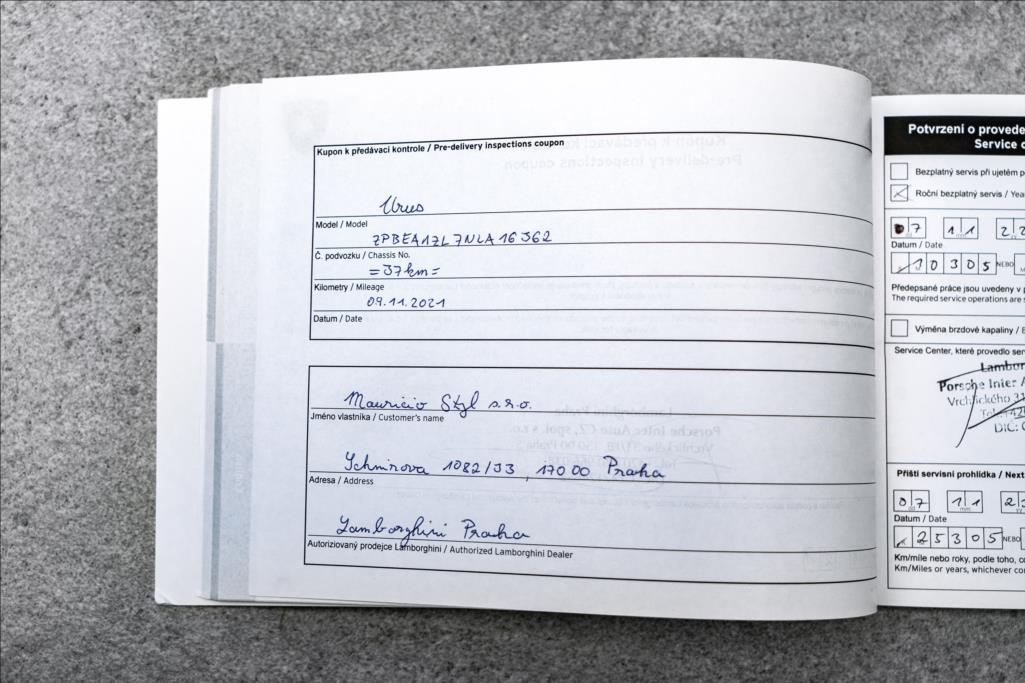 Kupon k předávací kontrole / Pre-delivery inspections coupon
Urus
Model / Model
ZPBEA1ZL7NLA16362
Č. podvozku / Chassis No.
=37km=
Kilometry / Mileage
09.11.2021
Datum / Date
Mauricio Styl s.r.o.
Jméno vlastníka / Customer's name
1082/33, 170 00 Praha
Adresa / Address
Lamborghini Praha
Autoriziovaný prodejce Lamborghini / Authorized Lamborghini Dealer
Potvrzení o provede
Service
Bezplatný servis při ujetém
Roční bezplatný servis / Yea
07 11 22
Datum / Date
10305 NEBO
Předepsané práce jsou uvedeny v
The required service operations are
Výměna brzdové kapaliny /
Service Center, které provedlo ser
Lambor
Porsche Inter
Vrchlického 31
Tel.: +420
DIČ: C
Příští servisní prohlídka / Next
07 11
Datum / Date
25305 NEBO
Km/míle nebo roky, podle toho,
Km/Miles or years, whichever